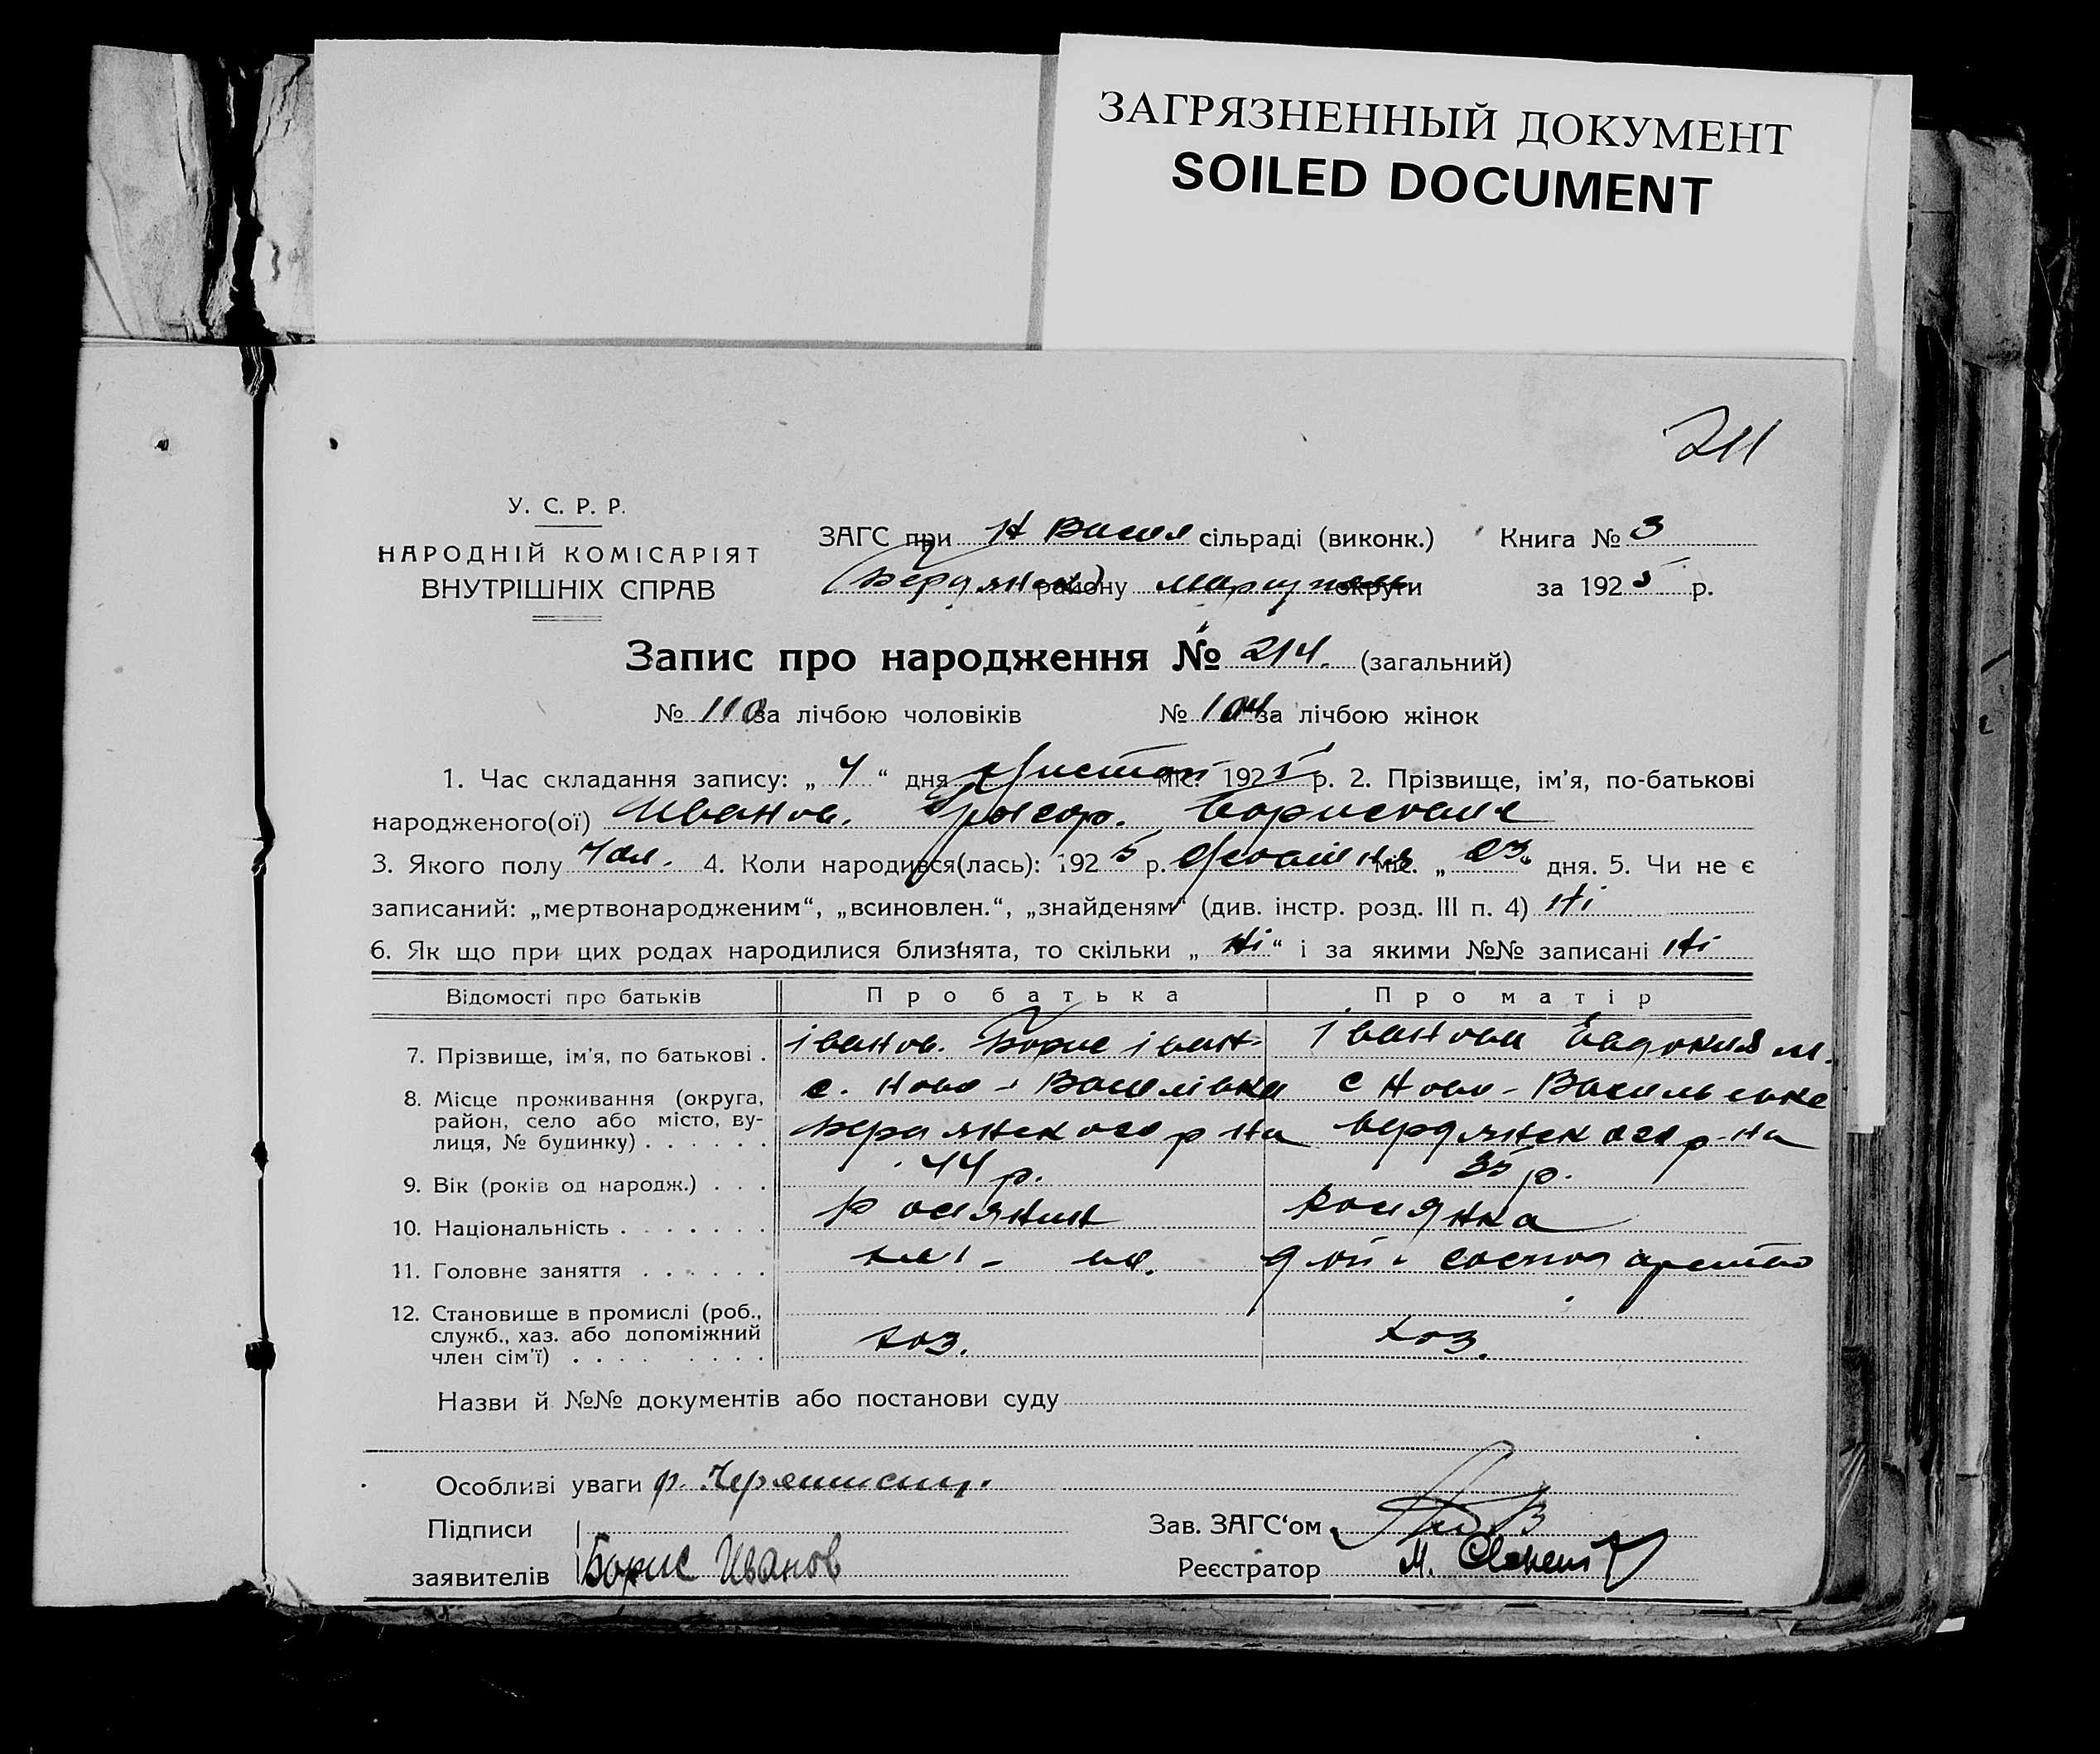 ЗАГРЯЗНЕННЫЙ ДОКУМЕНТ
SOILED DOCUMENT
211
У. С. Р. Р.
НАРОДНІЙ КОМІСАРІЯТ
ВНУТРІШНІХ СПРАВ
ЗАГС при Н Васил сільраді (виконк.) Книга № 3
Бердянськ району округи за 1925 р.
Запис про народження № 214. (загальний)
№ 110 за лічбою чоловіків № 104 за лічбою жінок
1. Час складання запису: „ 4 “ дня Листоп міс. 1925 р. 2. Прізвище, ім’я, по-батькові
народженого(ої) Иванов. Борисович
3. Якого полу чол. 4. Коли народився(лась): 1925 р. міс. „ 23 “ дня. 5. Чи не є
записаний: „мертвонародженим“, „всиновлен.“, „знайденям“ (див. інстр. розд. III п. 4) Ні
6. Як що при цих родах народилися близнята, то скільки „ Ні “ і за якими №№ записані Ні
Відомості про батьків Про батька Про матір
7. Прізвище, ім’я, по батькові . Іванов. Борис Іван Іванова Евдокия м.
8. Місце проживання (округа, район, село або місто, вулиця, № будинку) . . . . . . с. Ново - Василівка с Ново-
Бердянского р на Бердянского р-на
9. Вік (років од народж.) . . . 44 р. 35 р.
10. Національність . . . . . . . росянин росянка
11. Головне заняття . . . . . .
12. Становище в промислі (роб., служб., хаз. або допоміжний член сім’ї) . . . . . . . . хоз. хоз.
Назви й №№ документів або постанови суду
Особливі уваги р.
Підписи Зав. ЗАГС‘ом
заявителів Борис Иванов Реєстратор М.